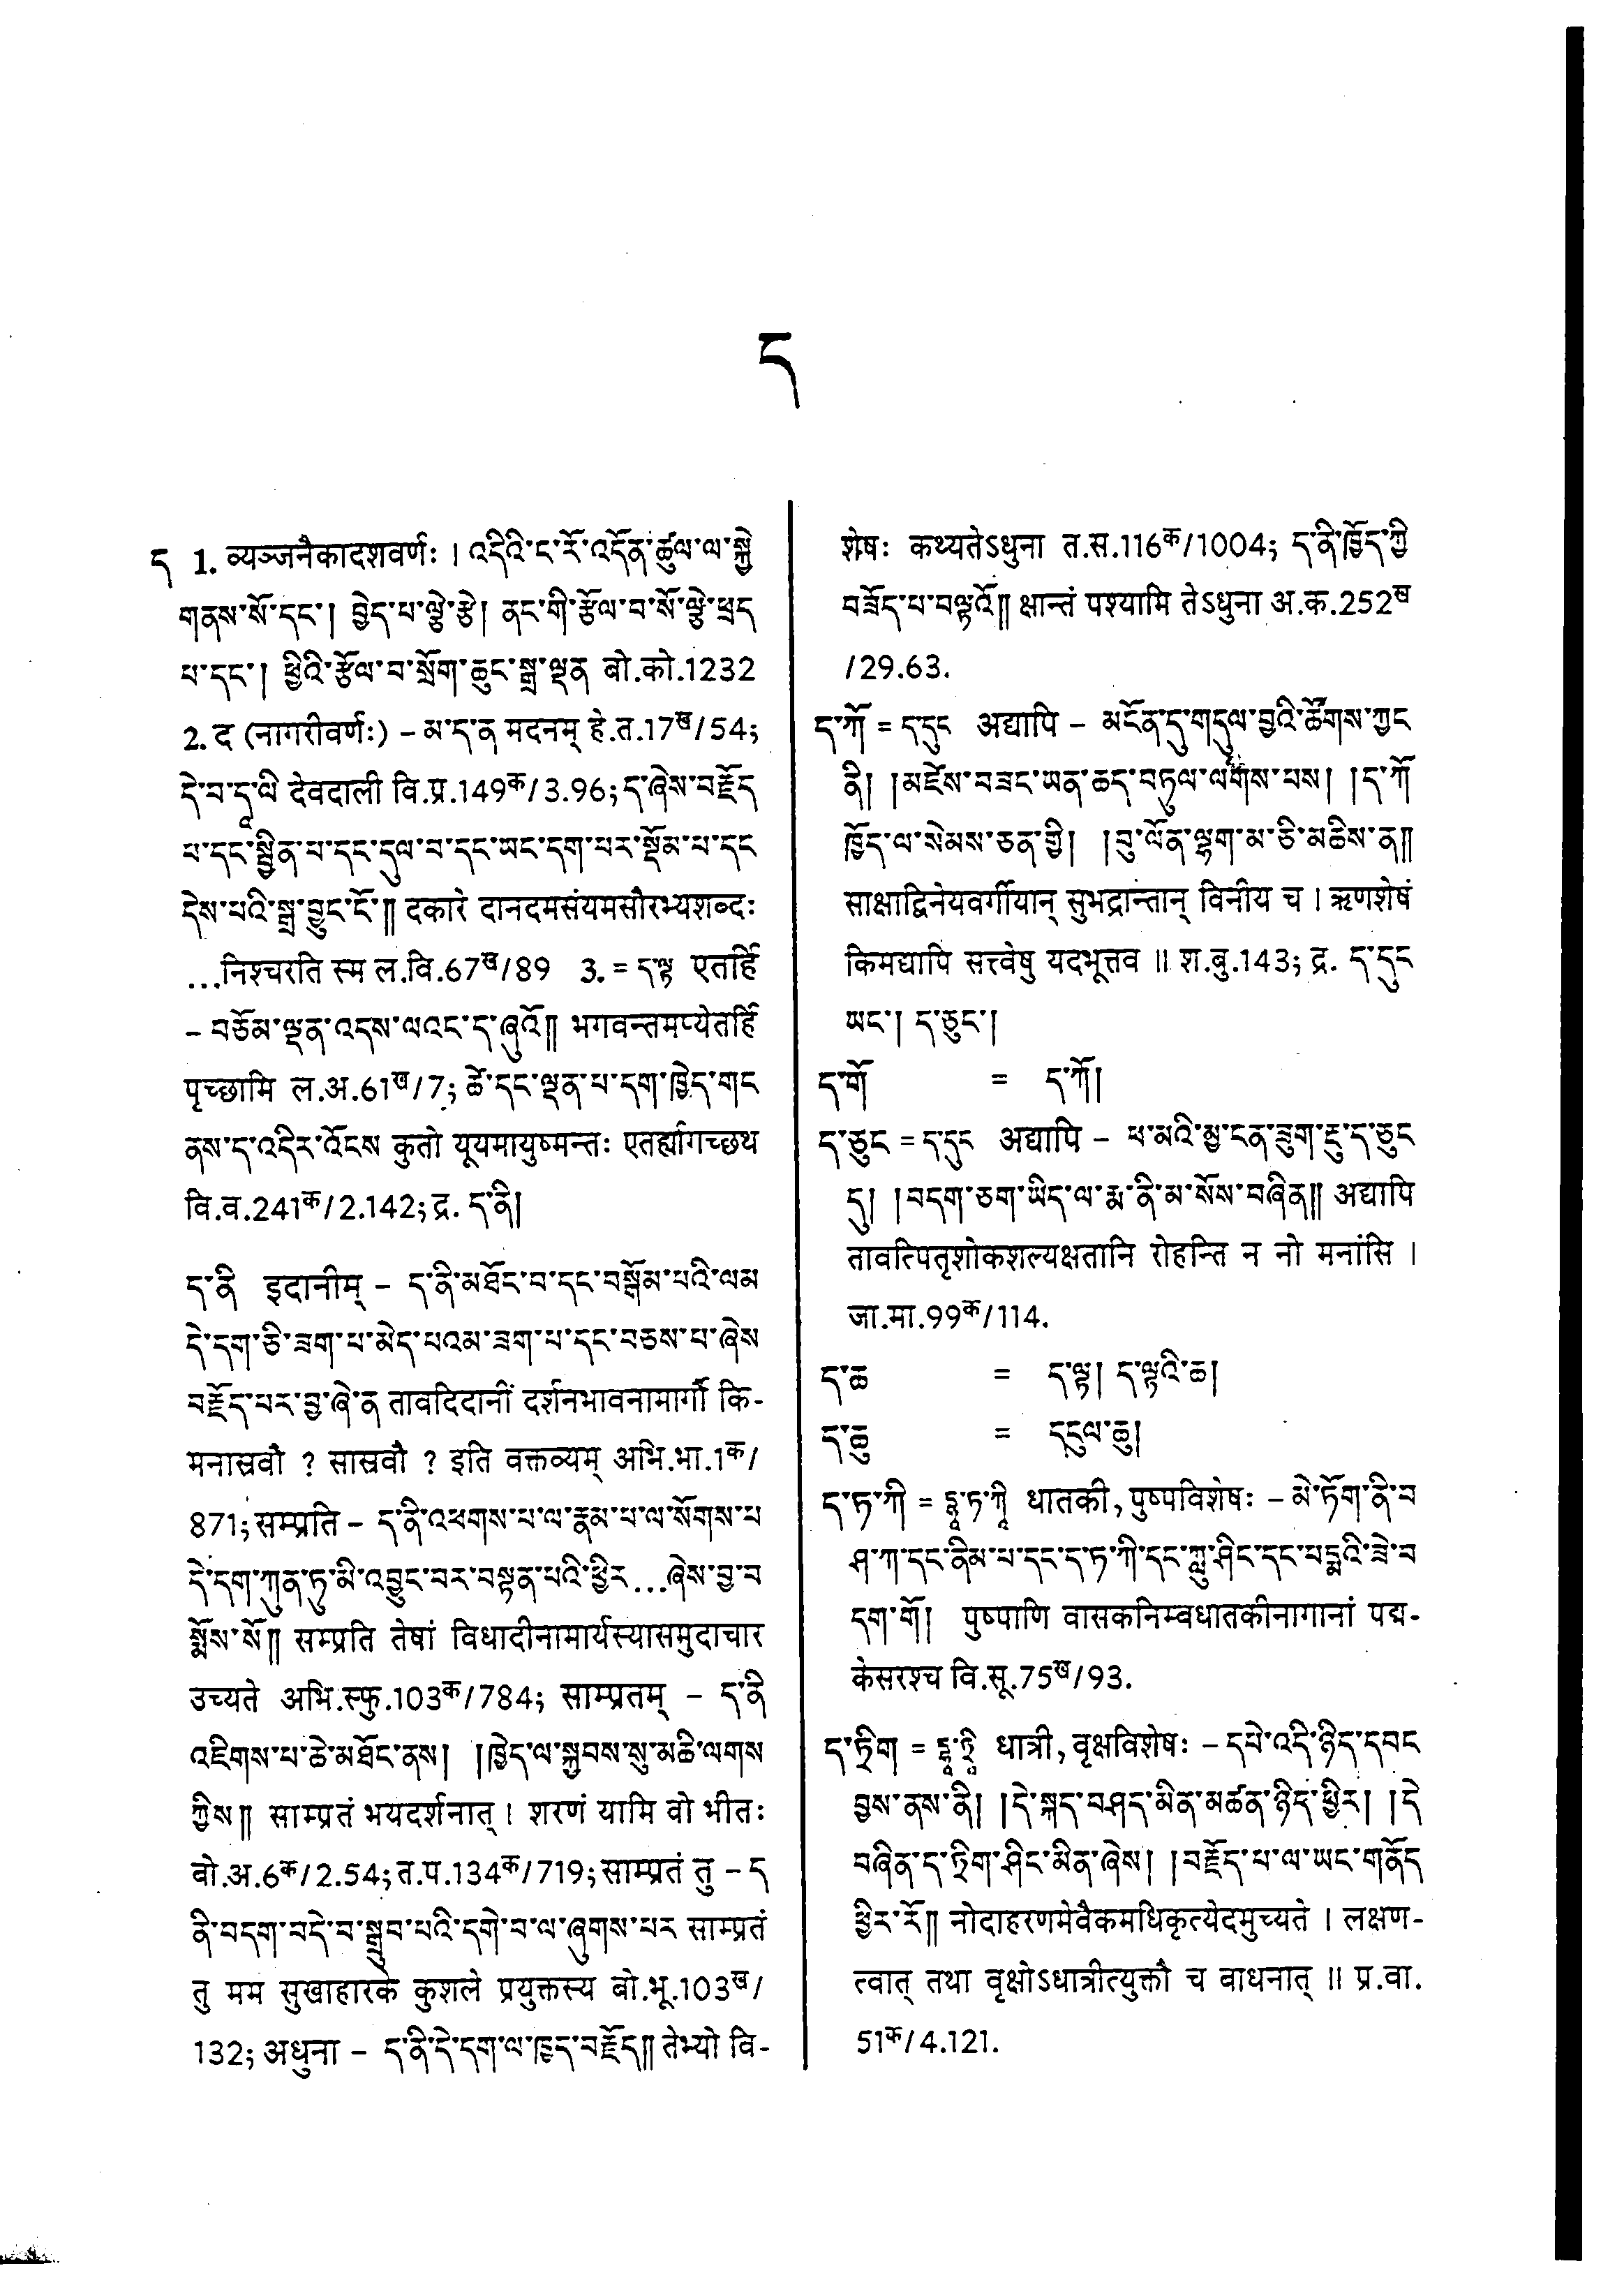 ད
ད 1. व्यञ्जनैकादशवर्णः । འདིའི་ང་རོ་འདོན་ཚུལ་ལ་སྐྱེ
གནས་སོ་དང་། བྱེད་པ་ལྕེ་རྩེ། ནང་གི་རྩོལ་བ་སོ་ལྕེ་ཕྲད
པ་དང་། ཕྱིའི་རྩོལ་བ་སྲོག་ཆུང་སྒྲ་ལྡན बो.को.1232
2. द (नागरीवर्णः) – མ་ད་ན मदनम् हे.त.17ख/54;
དེ་བ་དཱ་ལི देवदाली वि.प्र.149क/3.96; ད་ཞེས་བརྗོད
པ་དང་སྦྱིན་པ་དང་དུལ་བ་དང་ཡང་དག་པར་སྡོམ་པ་དང
དེས་པའི་སྒྲ་བྱུང་ངོ་༎ दकारे दानदमसंयमसौरभ्यशब्दः
...निश्चरति स्म ल.वि.67ख/89 3. = ད་ལྟ एतर्हि
– བཅོམ་ལྡན་འདས་ལའང་ད་ཞུའོ༎ भगवन्तमप्येतर्हि
पृच्छामि ल.अ.61ख/7; ཚེ་དང་ལྡན་པ་དག་ཁྱེད་གང
ནས་ད་འདིར་འོངས कुतो यूयमायुष्मन्तः एतर्ह्यागच्छथ
वि.व.241क/2.142; द्र. ད་ནི།
ད་ནི इदानीम् – ད་ནི་མཐོང་བ་དང་བསྒོམ་པའི་ལམ
དེ་དག་ཅི་ཟག་པ་མེད་པའམ་ཟག་པ་དང་བཅས་པ་ཞེས
བརྗོད་པར་བྱ་ཞེ་ན तावदिदानीं दर्शनभावनामार्गौ कि-
मनास्रवौ ? सास्रवौ ? इति वक्तव्यम् अभि.भा.1क/
871; सम्प्रति – ད་ནི་འཕགས་པ་ལ་རྣམ་པ་ལ་སོགས་པ
དེ་དག་ཀུན་ཏུ་མི་འབྱུང་བར་བསྟན་པའི་ཕྱིར...ཞེས་བྱ་བ
སྨོས་སོ༎ सम्प्रति तेषां विधादीनामार्यस्यासमुदाचार
उच्यते अभि.स्फु.103क/784; साम्प्रतम् – ད་ནི
འཇིགས་པ་ཆེ་མཐོང་ནས། །ཁྱེད་ལ་སྐྱབས་སུ་མཆི་ལགས
ཀྱིས༎ साम्प्रतं भयदर्शनात् । शरणं यामि वो भीतः
बो.अ.6क/2.54; त.प.134क/719; साम्प्रतं तु – ད
ནི་བདག་བདེ་བ་སྒྲུབ་པའི་དགེ་བ་ལ་ཞུགས་པར साम्प्रतं
तु मम सुखाहारके कुशले प्रयुक्तस्य बो.भू.103ख/
132; अधुना – ད་ནི་དེ་དག་ལ་ཁྱད་བརྗོད༎ तेभ्यो वि-
शेषः कथ्यतेऽधुना त.स.116क/1004; ད་ནི་ཁྱོད་ཀྱི
བཟོད་པ་བལྟའོ༎ क्षान्तं पश्यामि तेऽधुना अ.क.252ख
/29.63.
ད་ཀོ = ད་དུང अद्यापि – མངོན་དུ་གདུལ་བྱའི་ཚོགས་ཀྱང
ནི། །མཛེས་བཟང་ཡན་ཆད་བཏུལ་ལགས་པས། །ད་ཀོ
ཁྱོད་ལ་སེམས་ཅན་གྱི། །བུ་ལོན་ལྷག་མ་ཅི་མཆིས་ན༎
साक्षाद्विनेयवर्गीयान् सुभद्रान्तान् विनीय च । ऋणशेषं
किमद्यापि सत्त्वेषु यदभूत्तव ॥ श.बु.143; द्र. ད་དུང
ཡང་། ད་ཅུང་།
ད་གོ = ད་ཀོ།
ད་ཅུང = ད་དུང अद्यापि – ཕ་མའི་མྱ་ངན་ཟུག་རྔུ་ད་ཅུང
དུ། །བདག་ཅག་ཡིད་ལ་རྨ་ནི་མ་སོས་བཞིན༎ अद्यापि
तावत्पितृशोकशल्यक्षतानि रोहन्ति न नो मनांसि ।
जा.मा.99क/114.
ད་ཆ = ད་ལྟ། ད་ལྟའི་ཆ།
ད་ཆུ = དངུལ་ཆུ།
ད་ཏ་ཀི = དྷཱ་ཏ་ཀཱི धातकी, पुष्पविशेषः – མེ་ཏོག་ནི་བ
ཤ་ཀ་དང་ནིམ་པ་དང་ད་ཏ་ཀི་དང་ཀླུ་ཤིང་དང་པདྨའི་ཟེ་བ
དག་གོ། पुष्पाणि वासकनिम्बधातकीनागानां पद्म-
केसरश्च वि.सू.75ख/93.
ད་ཏྲིག = དྷཱ་ཏྲཱི धात्री, वृक्षविशेषः – དཔེ་འདི་ཉིད་དབང
བྱས་ནས་ནི། །དེ་སྐད་བཤད་མིན་མཚན་ཉིད་ཕྱིར། །དེ
བཞིན་ད་ཏྲིག་ཤིང་མིན་ཞེས། །བརྗོད་པ་ལ་ཡང་གནོད
ཕྱིར་རོ༎ नोदाहरणमेवैकमधिकृत्येदमुच्यते । लक्षण-
त्वात् तथा वृक्षोऽधात्रीत्युक्तौ च बाधनात् ॥ प्र.वा.
51क/4.121.